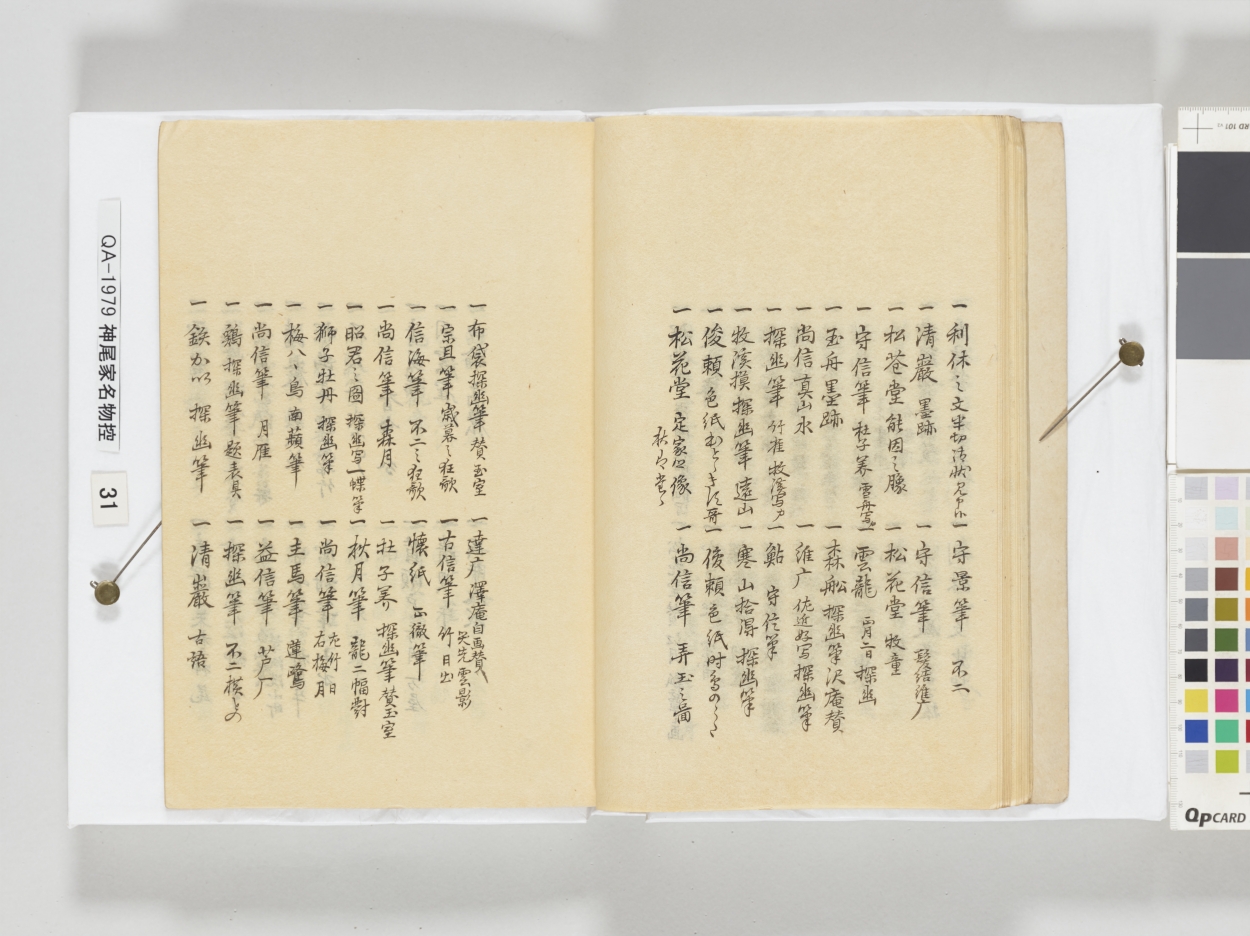 一 利休之文半切
一 守景筆 不二
一 清巌 墨跡
一 守信筆
一 松花堂 能因之
一 松花堂 牧童
一 守信筆 杜子美
一 雲龍 正月二日 探幽
一 玉舟 墨跡
一 森船 探幽筆沢庵賛
一 尚信 真山水
一 維广 写探幽筆
一 探幽筆 竹雀 牧渓写
一 鮎 守信筆
一 牧渓摸 探幽筆 遠山
一 寒山拾得 探幽筆
一 俊頼 色紙
一 俊頼 色紙 時鳥の
一 松花堂 定家 像
一 尚信筆 弄玉之圖
一 布袋 探幽筆 賛 玉室
一 達广 澤庵自画賛
一 宗且筆 歳暮之狂歌
一 古信筆 竹日出
一 信海筆 不二之狂歌
一 懐紙 正徹筆
一 尚信筆 森月
一 杜子美 探幽筆 賛玉室
一 昭君之圖 探幽写 一蝶筆
一 秋月筆 龍二幅對
一 獅子牡丹 探幽筆
一 尚信筆 左竹日 右梅月
一 梅八々鳥 南蘋筆
一 主馬筆 蓮鷺
一 尚信筆 月雁
一 益信筆 芦广
一 鶏 探幽筆 題表具
一 探幽筆 不二横もの
一 鉄かい 探幽筆
一 清巌 古語
QA-1979 神尾家名物控
31
QPCARD